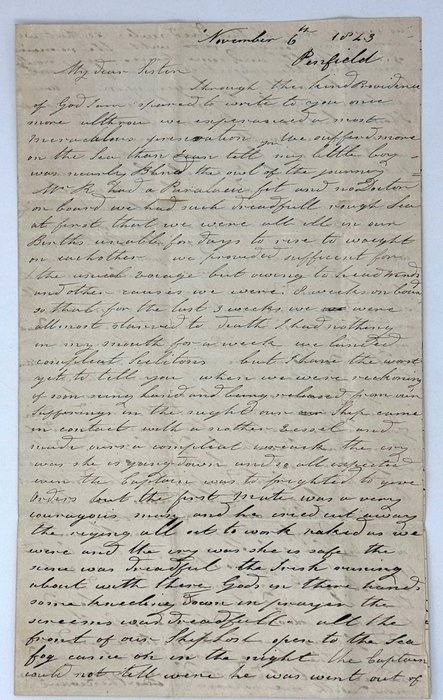 November 6th 1843
Penfield
My dear Sister
Through the kind Providence
of God I am spared to write to you once
more althrow we experianced a most
Miraculous preservation we sufferd more
on the Sea than I can tell you my little boy
was nearly Blind the end of the journey
Mr K had a Paralatic fit and no Doctor
on board we had such dreadfull rough Sea
at first that we were all ill in our
Births unable for days to rise to waight
on eachother we provided sufficent for
the usual voiage but owing to head winds
and other causes we were 8 weeks on board
so that for the last 3 weeks we were
allmost starved to death I had nothing
in my mouth for a week we landed
compleat Sceletons but I have the worst
yet to tell you when we were reckoning
of soon seeing land and being released from our
Sufferings in the night our Ship came
in contact with a nother vessel and
made ours a compleat wreck the cry
was she is going down and we all expected
even the Captain was to frighted to give
orders but the first Mate was a very
couragous man and he cried cut away
the riging all out to work naked as we
were and the cry was she is safe the
scene was dreadfull the Irish runing
about with there Gods in there hands
some kneeling down in prayer the
screems was dreadfull all the
front of our Ship lost open to the Sea
fog came on in the night the Captain
could not tell were he was went out of